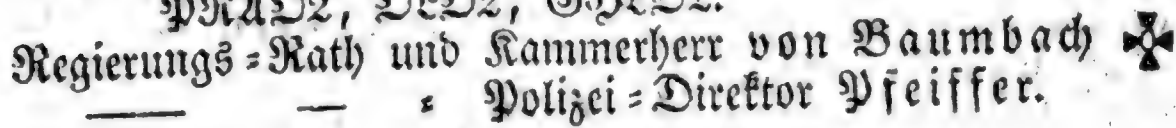 PRAD2, DLD2, GHLD2.
Regierungs=Rath und Kammerherr von Baumbach ✠
— — = Polizei=Direktor Pfeiffer.